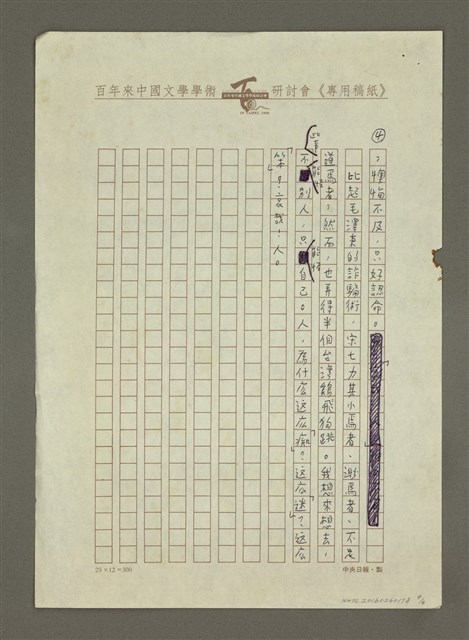 百年來中國文學學術研討會《專用稿紙》
④
，懊惱不及，只好認命。
比起毛澤東的詐騙術，宋七力其小焉者，謝焉者，不足
道焉者，然而，也弄得半個台灣鷄飛狗跳。我想來想去，
不能怪別人，只能怪自己。人，為什么这么「痴」？这么「迷」？这么
「笨」？哀哉！人。
25×12＝300
中央日報‧製